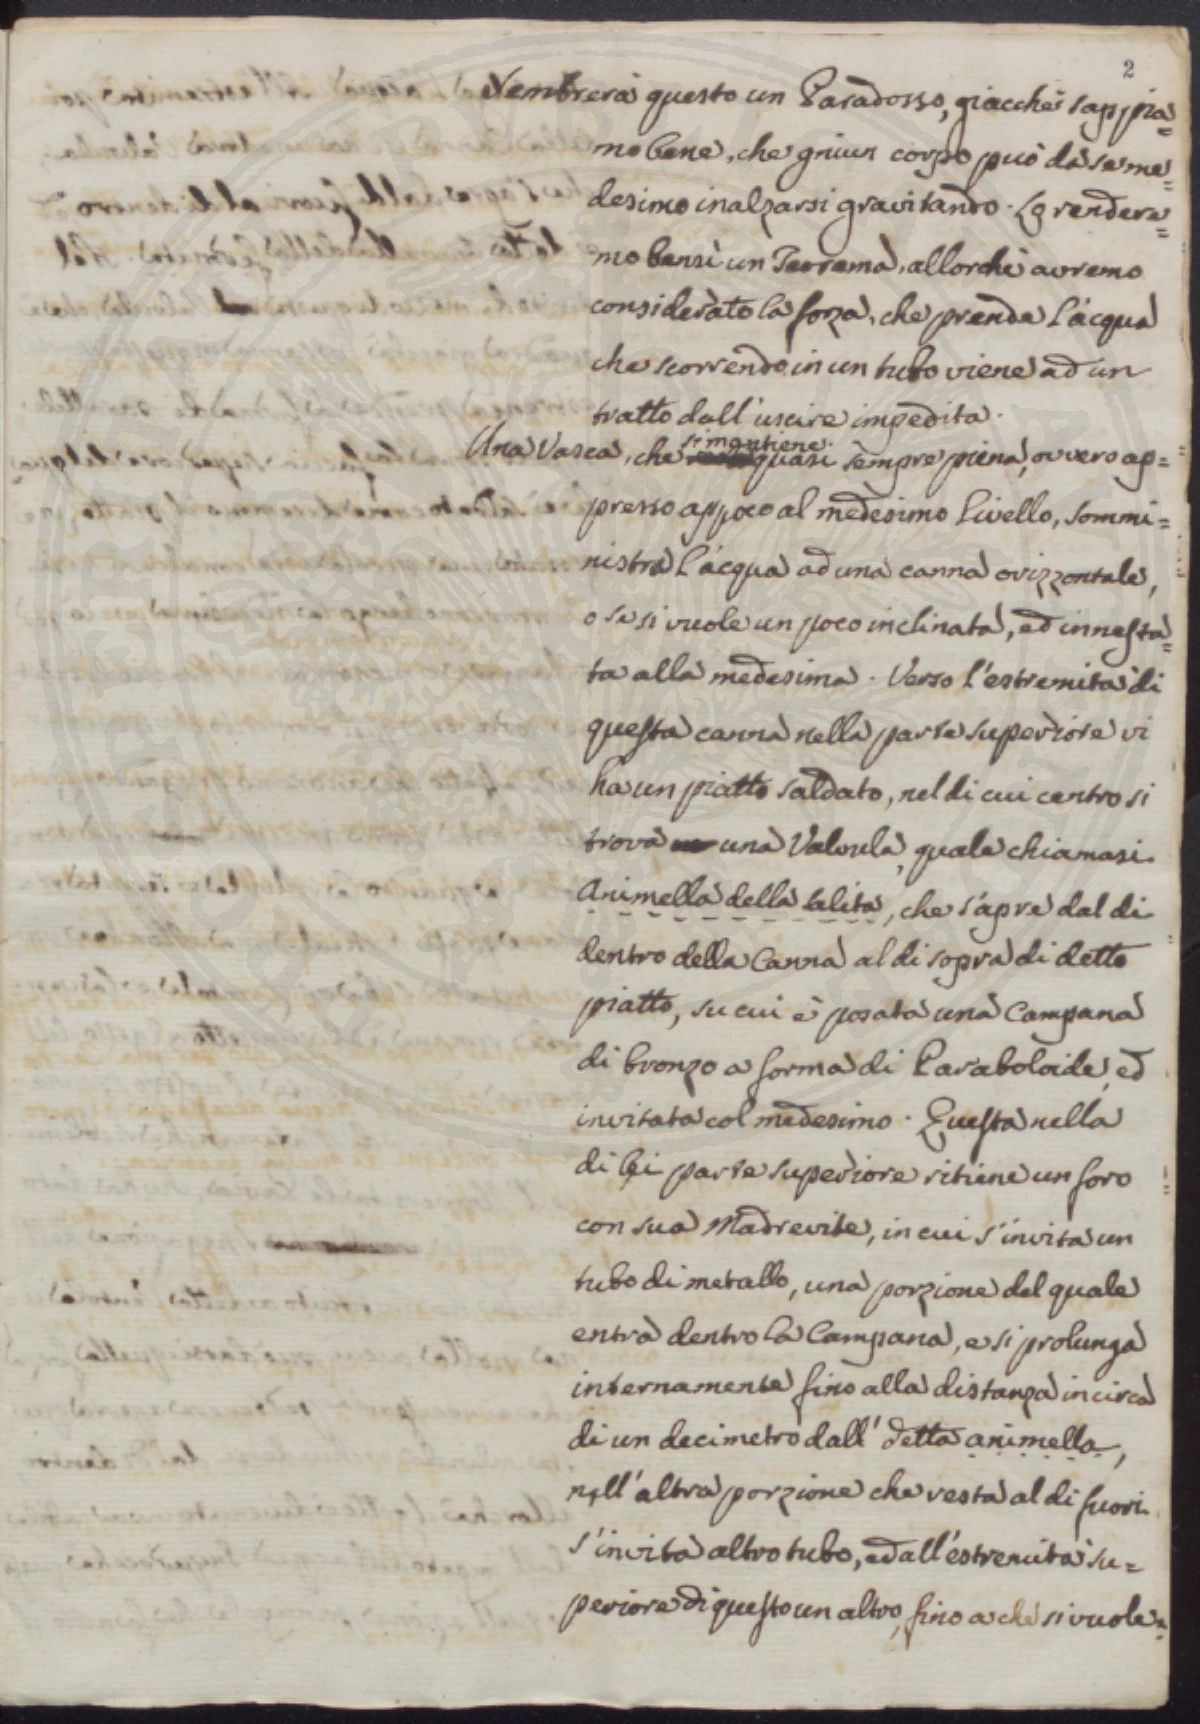 2
Sembrerà questo un Paradosso, giacchè sappia=
mo bene, che gniun corpo può da se me=
desimo inalzarsi gravitando. Lo rendere=
mo bensì un Teorema, allorchè avremo
considerato la forza, che prende l'acqua
che scorrendo in un tubo viene ad un
tratto dall'uscire impedita.
si mantiene
Una Vasca, che quasi sempre piena, ovvero ap=
presso appoco al medesimo livello, sommi=
nistra l'acqua ad una canna orizzontale,
o se si vuole un poco inclinata, ed innesta=
ta alla medesima. Verso l'estremità di
questa canna nella parte superiore vi
ha un piatto saldato, nel di cui centro si
trova una Valvula, quale chiamasi
Animella della salita, che s'apre dal di
dentro della Canna al di sopra di detto
piatto, su cui è posata una Campana
di bronzo a forma di Paraboloide, ed
invitata col medesimo. Questa nella
di lei parte superiore ritiene un foro
con sua Madrevite, in cui s'invita un
tubo di metallo, una porzione del quale
entra dentro la Campana, e si prolunga
internamente fino alla distanza in circa
di un decimetro dall' detta animella,
nell'altra porzione che resta al di fuori
s'invita altro tubo, ed all'estremità su=
periore di questo un altro, fino a che si vuole.